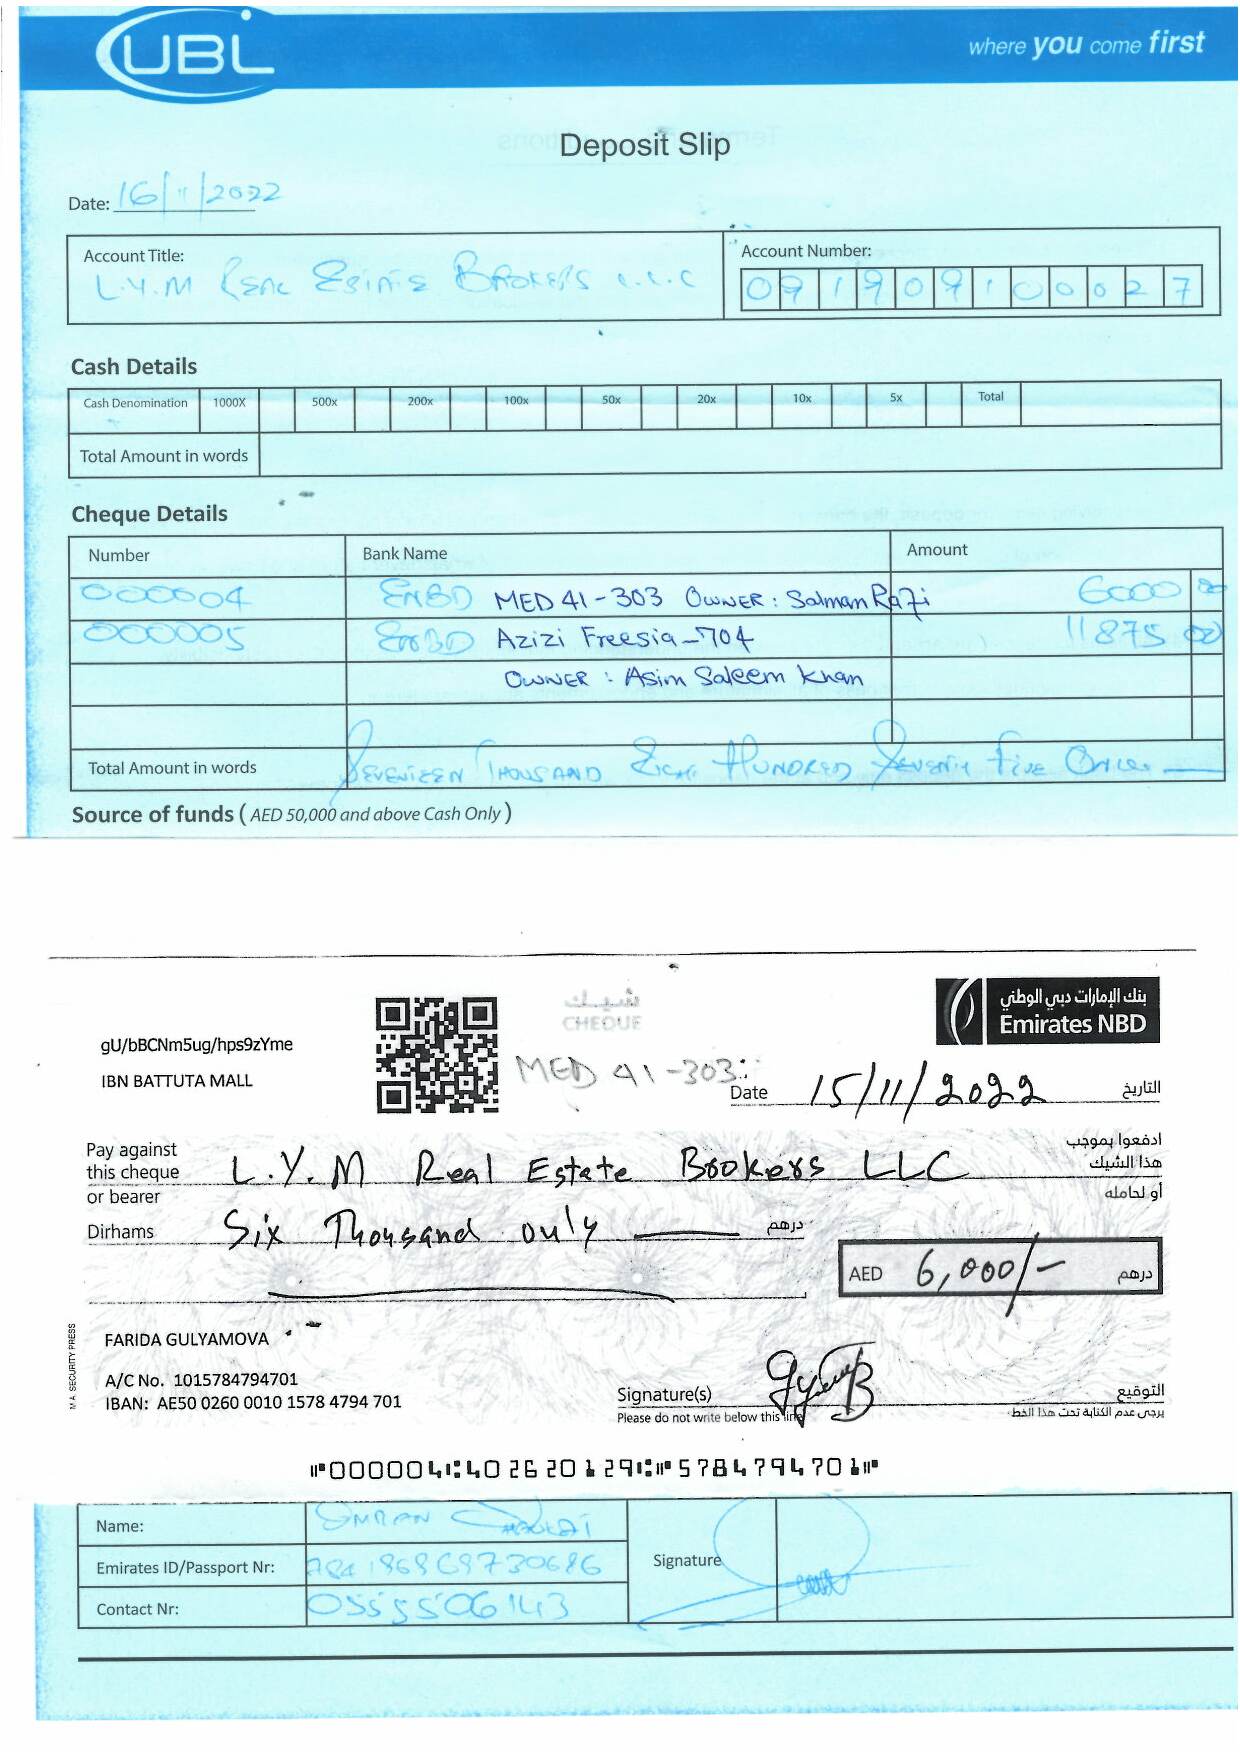 UBL
where you come first
Deposit Slip
Date: 16/11/2022
Account Title:
L.Y.M Real Estate Brokers L.L.C
Account Number:
0919091000027
Cash Details
Cash Denomination 1000X 500x 200x 100x 50x 20x 10x 5x Total
Total Amount in words
Cheque Details
Number Bank Name Amount
000004 ENBD MED 41-303 OWNER: Salman Rafi 6000 00
000005 ENBD Azizi Freesia-704 11875 00
OWNER: Asim Saleem Khan
Total Amount in words Seventeen Thousand Eight Hundred Seventy Five Only
Source of funds ( AED 50,000 and above Cash Only )
شيك
CHEQUE
بنك الإمارات دبي الوطني
Emirates NBD
gU/bBCNm5ug/hps9zYme
IBN BATTUTA MALL
MED 41-303
Date 15/11/2022 التاريخ
Pay against this cheque or bearer L.Y.M Real Estate Brokers LLC ادفعوا بموجب هذا الشيك أو لحامله
Dirhams Six Thousand only درهم
AED 6,000/- درهم
M.A. SECURITY PRESS
FARIDA GULYAMOVA
A/C No. 1015784794701
IBAN: AE50 0260 0010 1578 4794 701
Signature(s) التوقيع
Please do not write below this line يرجى عدم الكتابة تحت هذا الخط
⑈000004⑆402620129⑆⑈5784794701⑈
Name: IMRAN
Emirates ID/Passport Nr:
Contact Nr: 0555506143
Signature